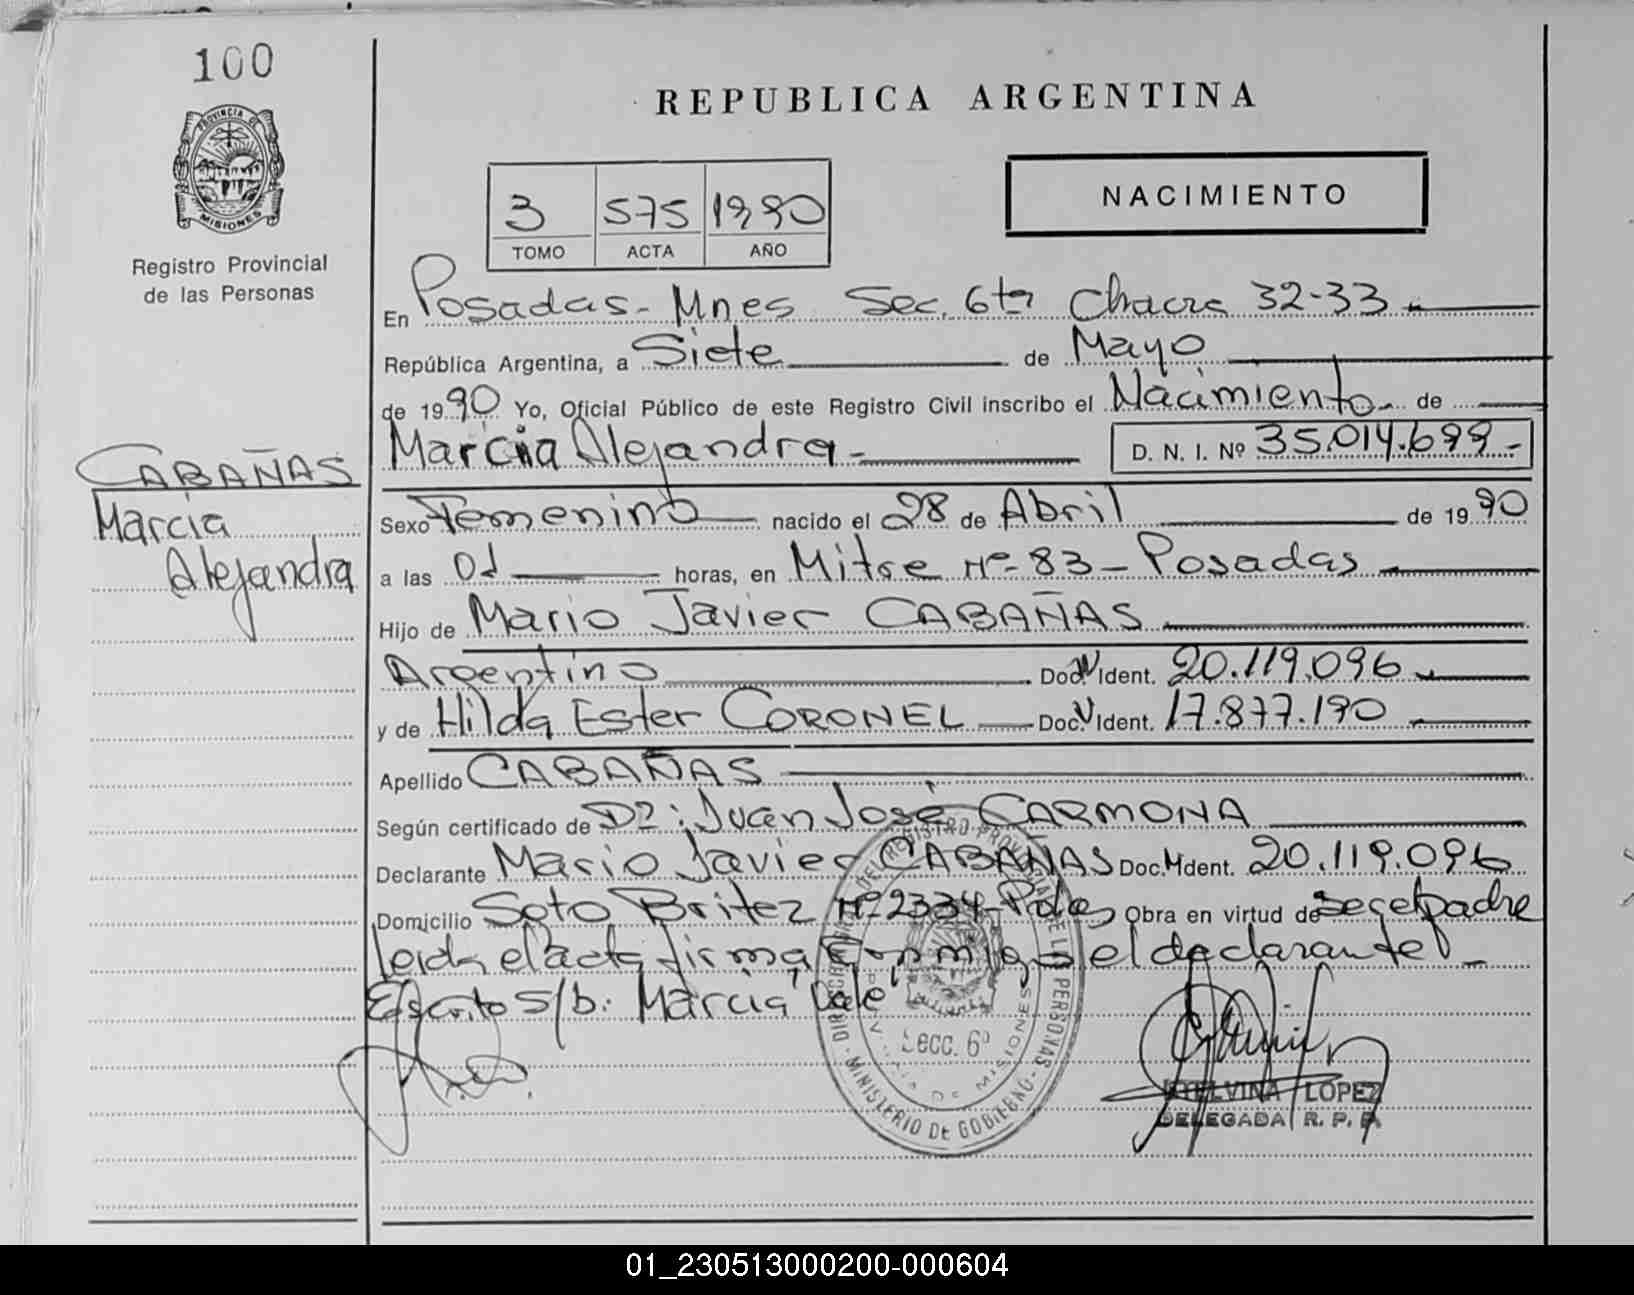 100
PROVINCIA DE
MISIONES
Registro Provincial
de las Personas
CABAÑAS
Marcia
Alejandra
REPUBLICA ARGENTINA
3 575 1990
TOMO ACTA AÑO
NACIMIENTO
En Posadas - Mnes Sec. 6ta Chacra 32-33
República Argentina, a Siete de Mayo
de 1990 Yo, Oficial Público de este Registro Civil inscribo el Nacimiento de
Marcia Alejandra - D. N. I. Nº 35.014.699 -
Sexo Femenino nacido el 28 de Abril de 1990
a las 01 horas, en Mitre Nº 83 - Posadas
Hijo de Mario Javier CABAÑAS
Argentino Doc. Ident. 20.119.096
y de Hilda Ester CORONEL Doc. Ident. 17.877.190
Apellido CABAÑAS
Según certificado de Dr: Juan José CARMONA
Declarante Mario Javier CABAÑAS Doc. M Ident. 20.119.096
Domicilio Soto Britez Nº 2334 - Pdas Obra en virtud de ser el padre
leida el acta firma conmigo el declarante -
Escrito s/b: "Marcia" Vale
DIRECCION DEL REGISTRO PROVINCIAL DE LAS PERSONAS
PROVINCIA DE MISIONES
Secc. 6º
MINISTERIO DE GOBIERNO
ETELVINA LOPEZ
DELEGADA R. P. P.
01_230513000200-000604